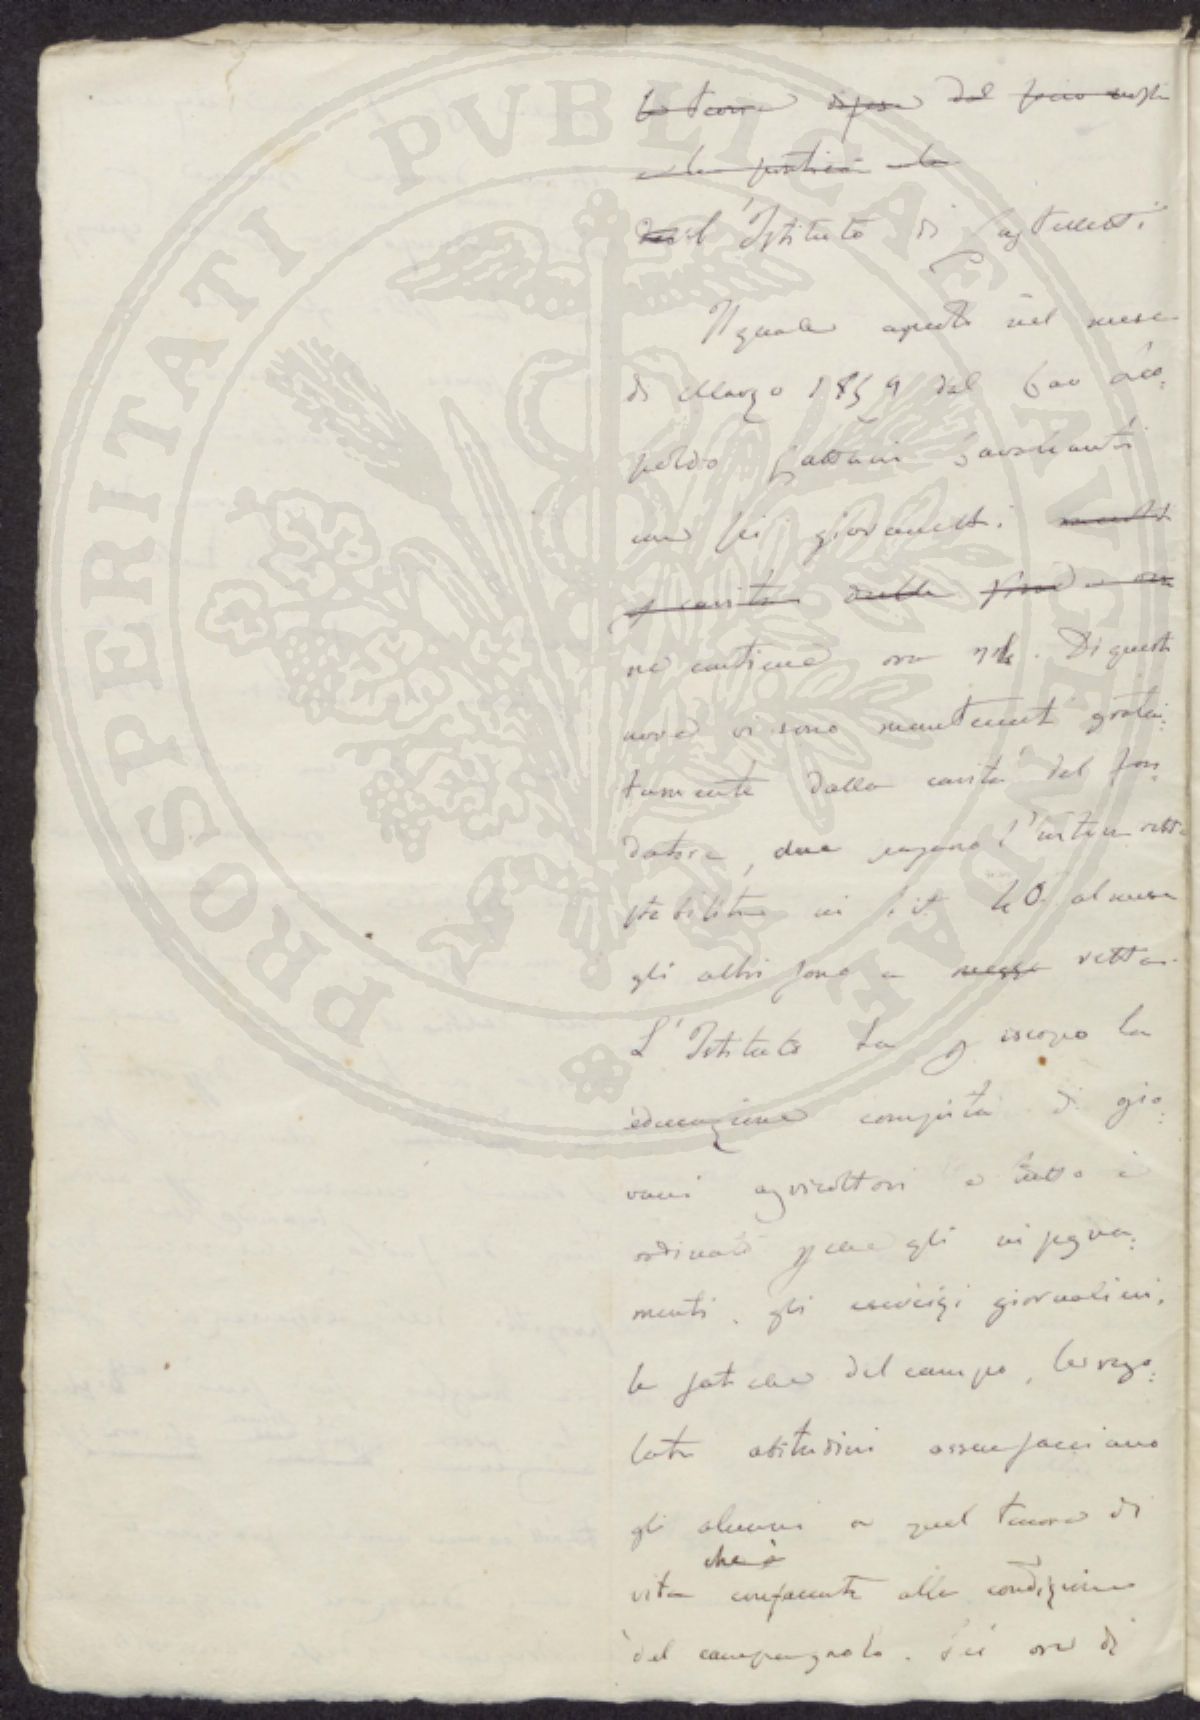 PROSPERITATI PUBLICAE AUGENDAE
l'Istituto di Castelletti
Il quale aperto nel mese
di Marzo 1859 dal Cav Leo:
poldo Cattani Cavalcanti
con sei giovanetti
ne contiene ora. Di questi
nove vi sono mantenuti gratui:
tamente dalla carità del fon:
datore, due pagano l'intera retta
stabilita in Lit 40 al mese
gli altri sono a mezza retta.
L'Istituto ha p iscopo la
educazione compita di gio:
vani agricoltori e tutto è
ordinato p che gli insegna:
menti, gli esercizi giornalieri,
le fatiche del campo, le rego:
late abitudini assuefacciano
gli alunni a quel tenore di
che è
vita confacente alla condizione
del campagnolo. Sei ore di